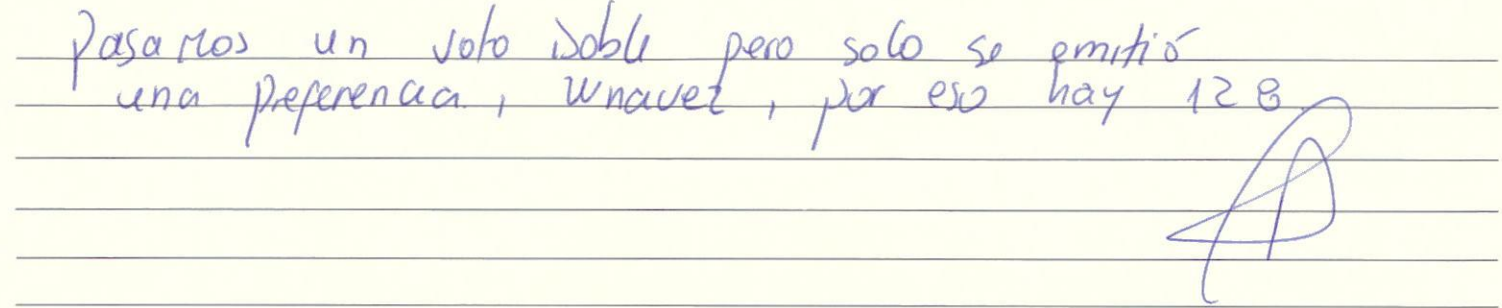 Pasamos un voto doble pero solo se emitió
una preferencia, Unavez, por eso hay 128